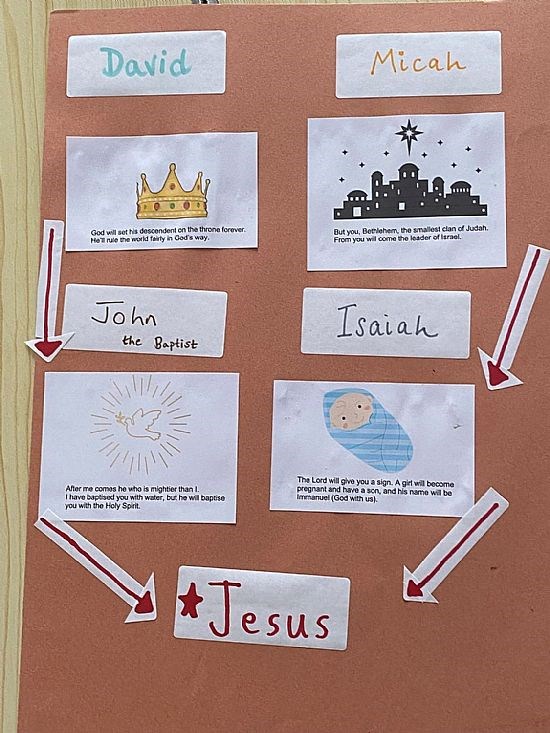 David
Micah
God will set his descendent on the throne forever.
He'll rule the world fairly in God's way.
But you, Bethlehem, the smallest clan of Judah.
From you will come the leader of Israel.
John
the Baptist
Isaiah
After me comes he who is mightier than I.
I have baptised you with water, but he will baptise
you with the Holy Spirit.
The Lord will give you a sign. A girl will become
pregnant and have a son, and his name will be
Immanuel (God with us).
Jesus